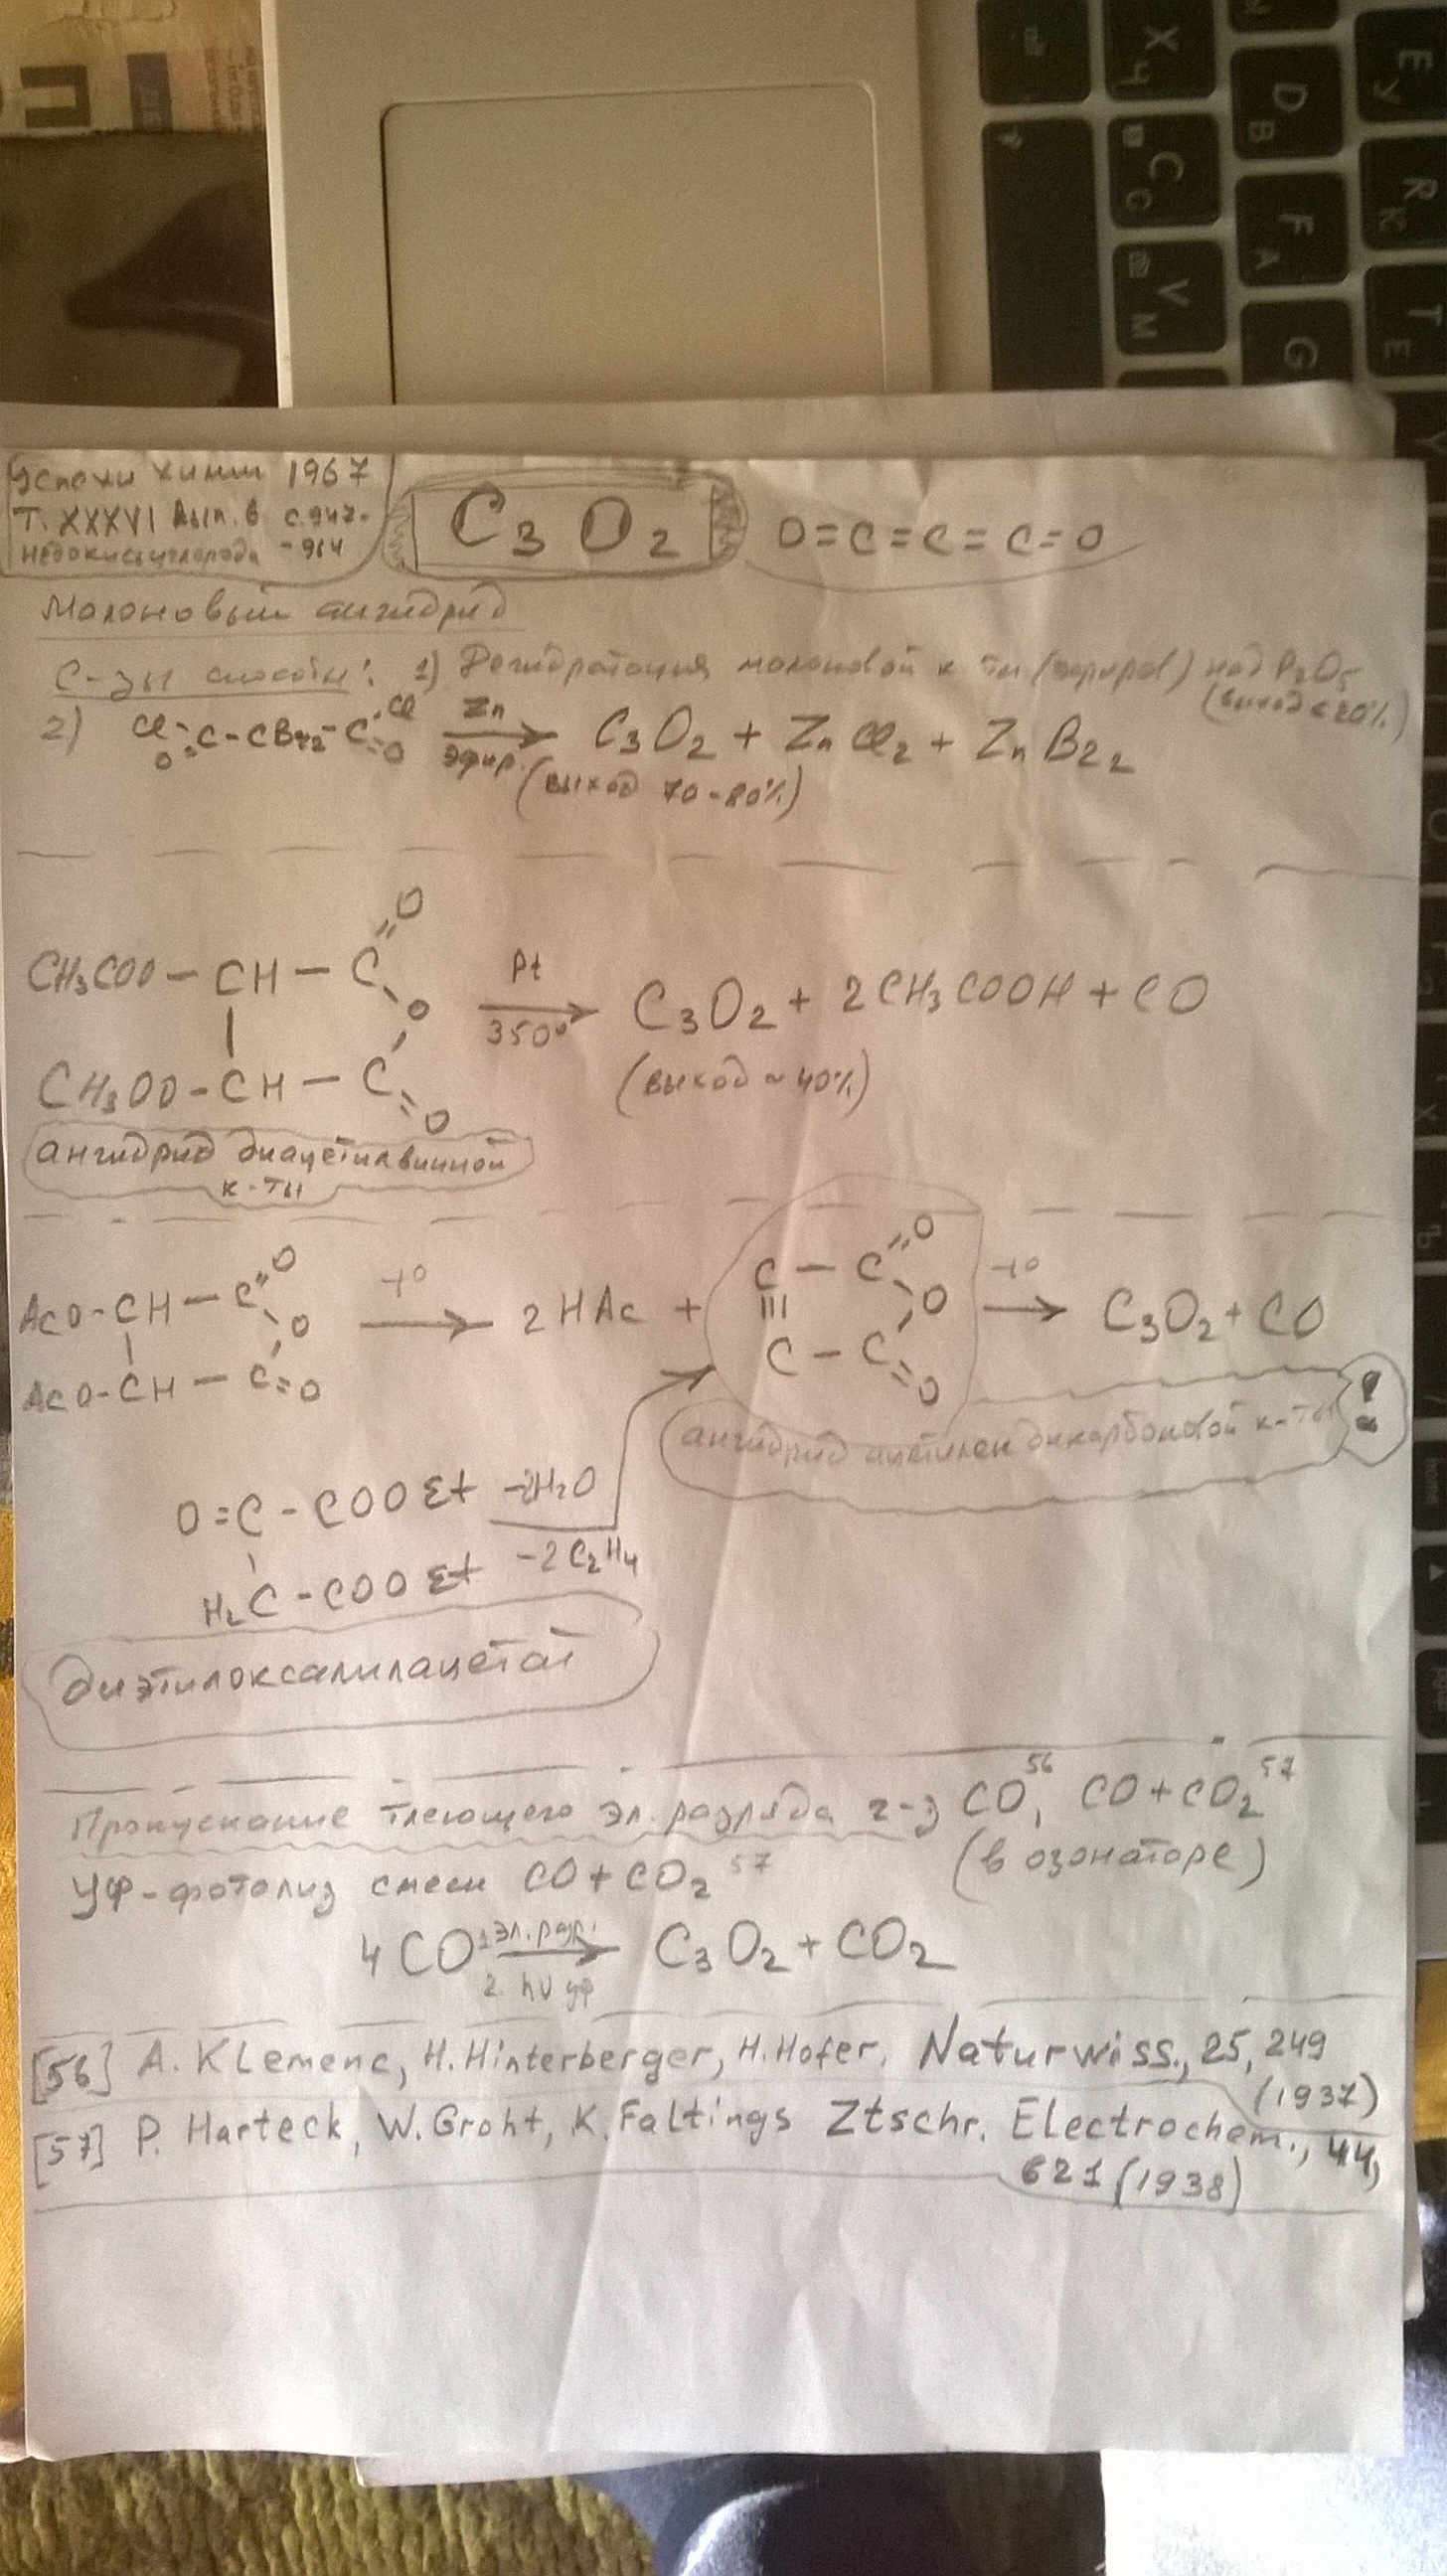 Успехи химии 1967
Т. XXXVI Вып. 6 с. 947-
недокись углерода -964
C₃O₂
O=C=C=C=O
Малоновый ангидрид
С-зы способы: 1) Дегидратация малоновой к-ты (эфиров) над P₂O₅
(выход <20%)
2) Cl-C-CBr₂-C-Cl Zn C₃O₂ + ZnCl₂ + ZnBr₂
O= =O эфир
(выход 70-80%)
O
CH₃COO-CH-C
O Pt 350° C₃O₂ + 2CH₃COOH + CO
CH₃OO-CH-C (выход ~40%)
O
ангидрид диацетилвинной
к-ты
O O
AcO-CH-C C-C
O t° 2HAc + O t° C₃O₂ + CO
AcO-CH-C=O C-C
O
ангидрид ацетилен дикарбоновой к-ты !
O=C-COOEt -2H₂O
H₂C-COOEt -2C₂H₄
диэтилоксалилацетат
Пропускание тлеющего эл. разряда ч-з CO,⁵⁶ CO+CO₂⁵⁷
(в озонаторе)
УФ-фотолиз смеси CO+CO₂⁵⁷
4CO 1 эл. разр. C₃O₂ + CO₂
2. hν уф
[56] A. Klemenc, H. Hinterberger, H. Hofer, Naturwiss., 25, 249
(1937)
[57] P. Harteck, W. Groht, K. Faltings Ztschr. Electrochem., 44,
621 (1938)
X Ч
D В
E У
C С
F А
R К
V М
G
T Е
home